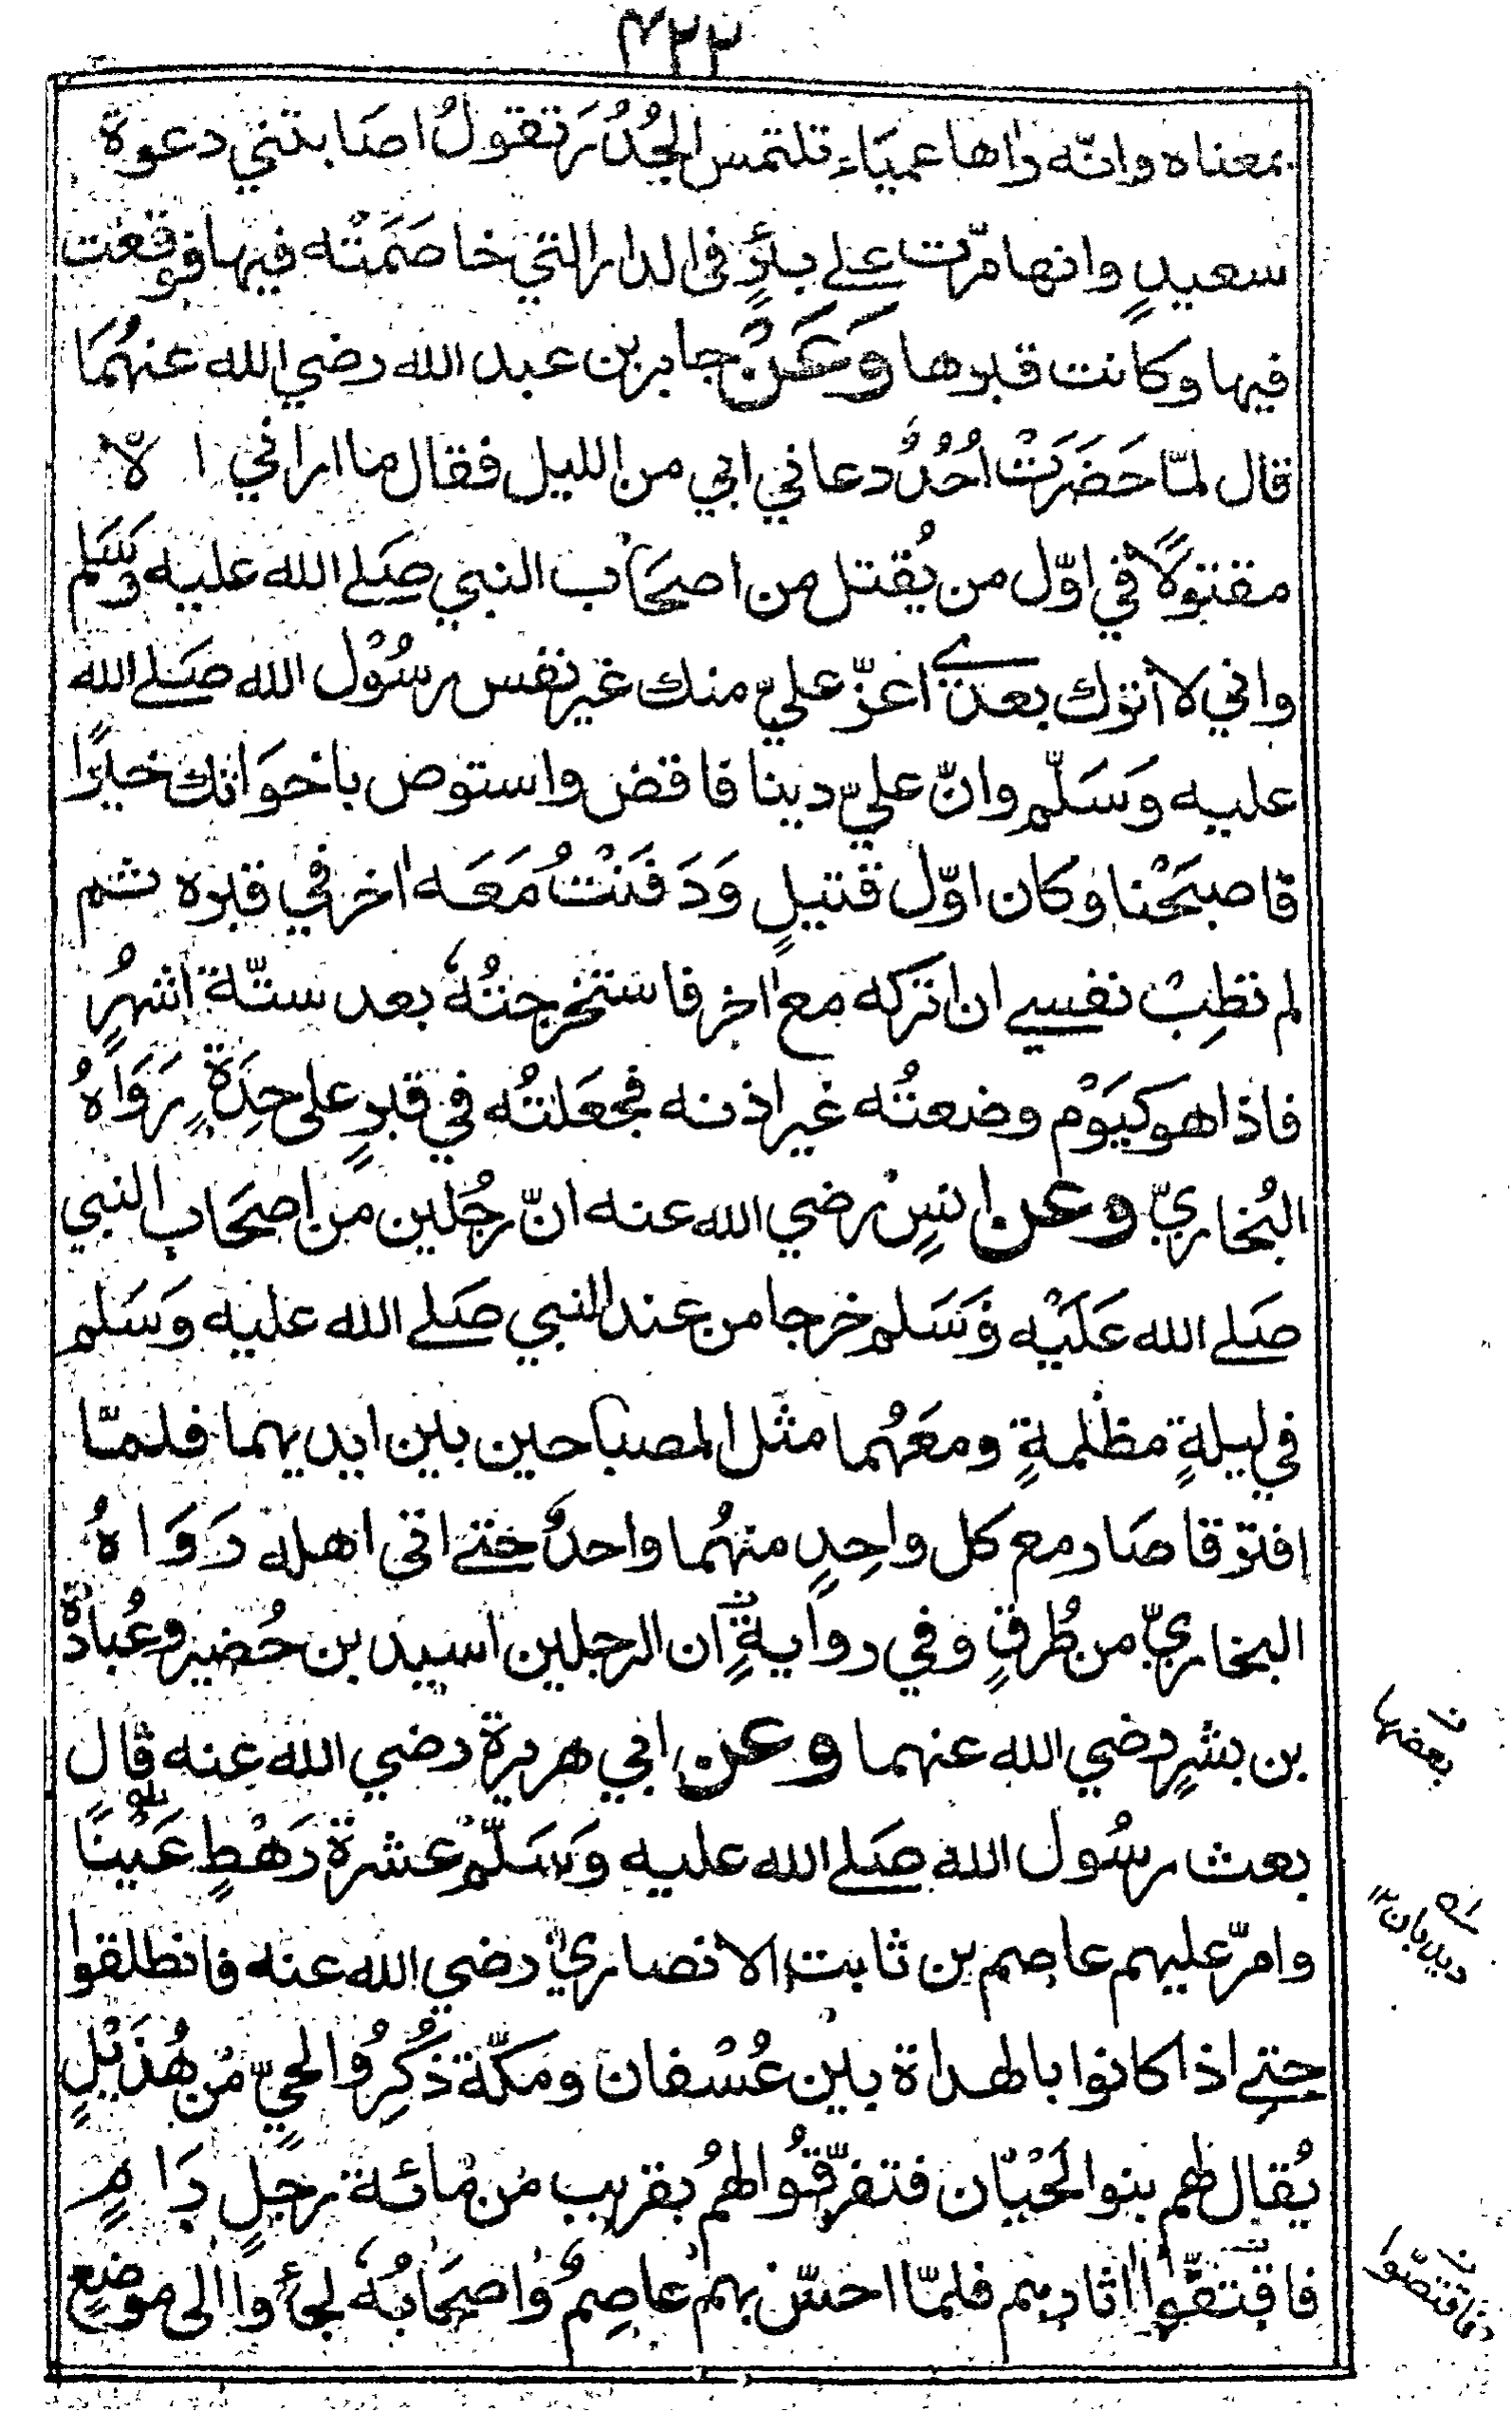 ٤٢٢
بمعناه وانّه رٰاها عميَاء تلتمس الجُدُرَ تقولُ اصَابتني دعوة
سعيدٍ وانها مرّت علے بئرٍ في الدار التي خاصَمَتْه فيها فوقعت
فيها وكانت قبرها وَعَنْ جابر بن عبد الله رضي الله عنهُمَا
قال لمّا حَضَرَتْ اُحُدٌ دعاني ابي من الليل فقال ما اراني الّا
مقتولًا في اوّل من يُقتل من اصحَاب النبي صَلے الله عليه وَسَلم
واني لا أترك بعدي اعزّ عليّ منك غير نفس رسُوْل الله صَلے الله
عليه وَسَلّم وانّ عليّ دينا فاقض واستوص باخوَاتك خيرًا
فاصبَحْنا وكان اوّل قتيلٍ وَدَفَنْتُ مَعَه اٰخر في قبره ثم
لم تطِبْ نفسي ان اترَكه مع اٰخر فاستخرجتُهٗ بعد ستّة اَشهُرٍ
فاذا هو كيَوْم وضعتُه غير اذنه فجعَلتُه في قبرٍ على حِدَةٍ رَوَاهُ
البُخاريّ وعن انسٍ رضي الله عنه انّ رجُلين من اصحَاب النبي
صَلے الله عَلَيْه وَسَلم خرجا من عند النبي صَلے الله عليه وَسَلم
في ليلةٍ مظلمةٍ ومعَهُما مثل المصباحين بين ايديهما فلمّا
افترقا صَار مع كل واحِدٍ منهُما واحدٌ حَتے اتى اهله رَوَاهُ
البخاريّ من طُرقٍ وفي روايةٍ ان الرجلين اسيد بن حُضير وعُبادة
بن بشرٍ رضي الله عنهما وعن ابي هريرة رضي الله عنه قال
بعث رسُول الله صَلے الله عليه وَسَلّم عشرة رَهْطٍ عَيْنًا
وامّر عليهم عاصم بن ثابت الانصاريّ رضي الله عنه فانطلقوا
حتے اذا كانوا بالهداة بين عُسْفان ومكّة ذُكِرُوا لحيّ مّن هُذَيْلٍ
يُقال لهم بنوا لَحْيَان فتفرّقُوا لهمُ بقريب مّن مائة رجلٍ رَامٍ
فاقتفّوا اٰثارهم فلمّا احسّ بهم عاصِمٌ وّاصحَابُهٗ لجأوا الى موضعٍ
ن بعضها
ديدبان
ن فاقتصّوا